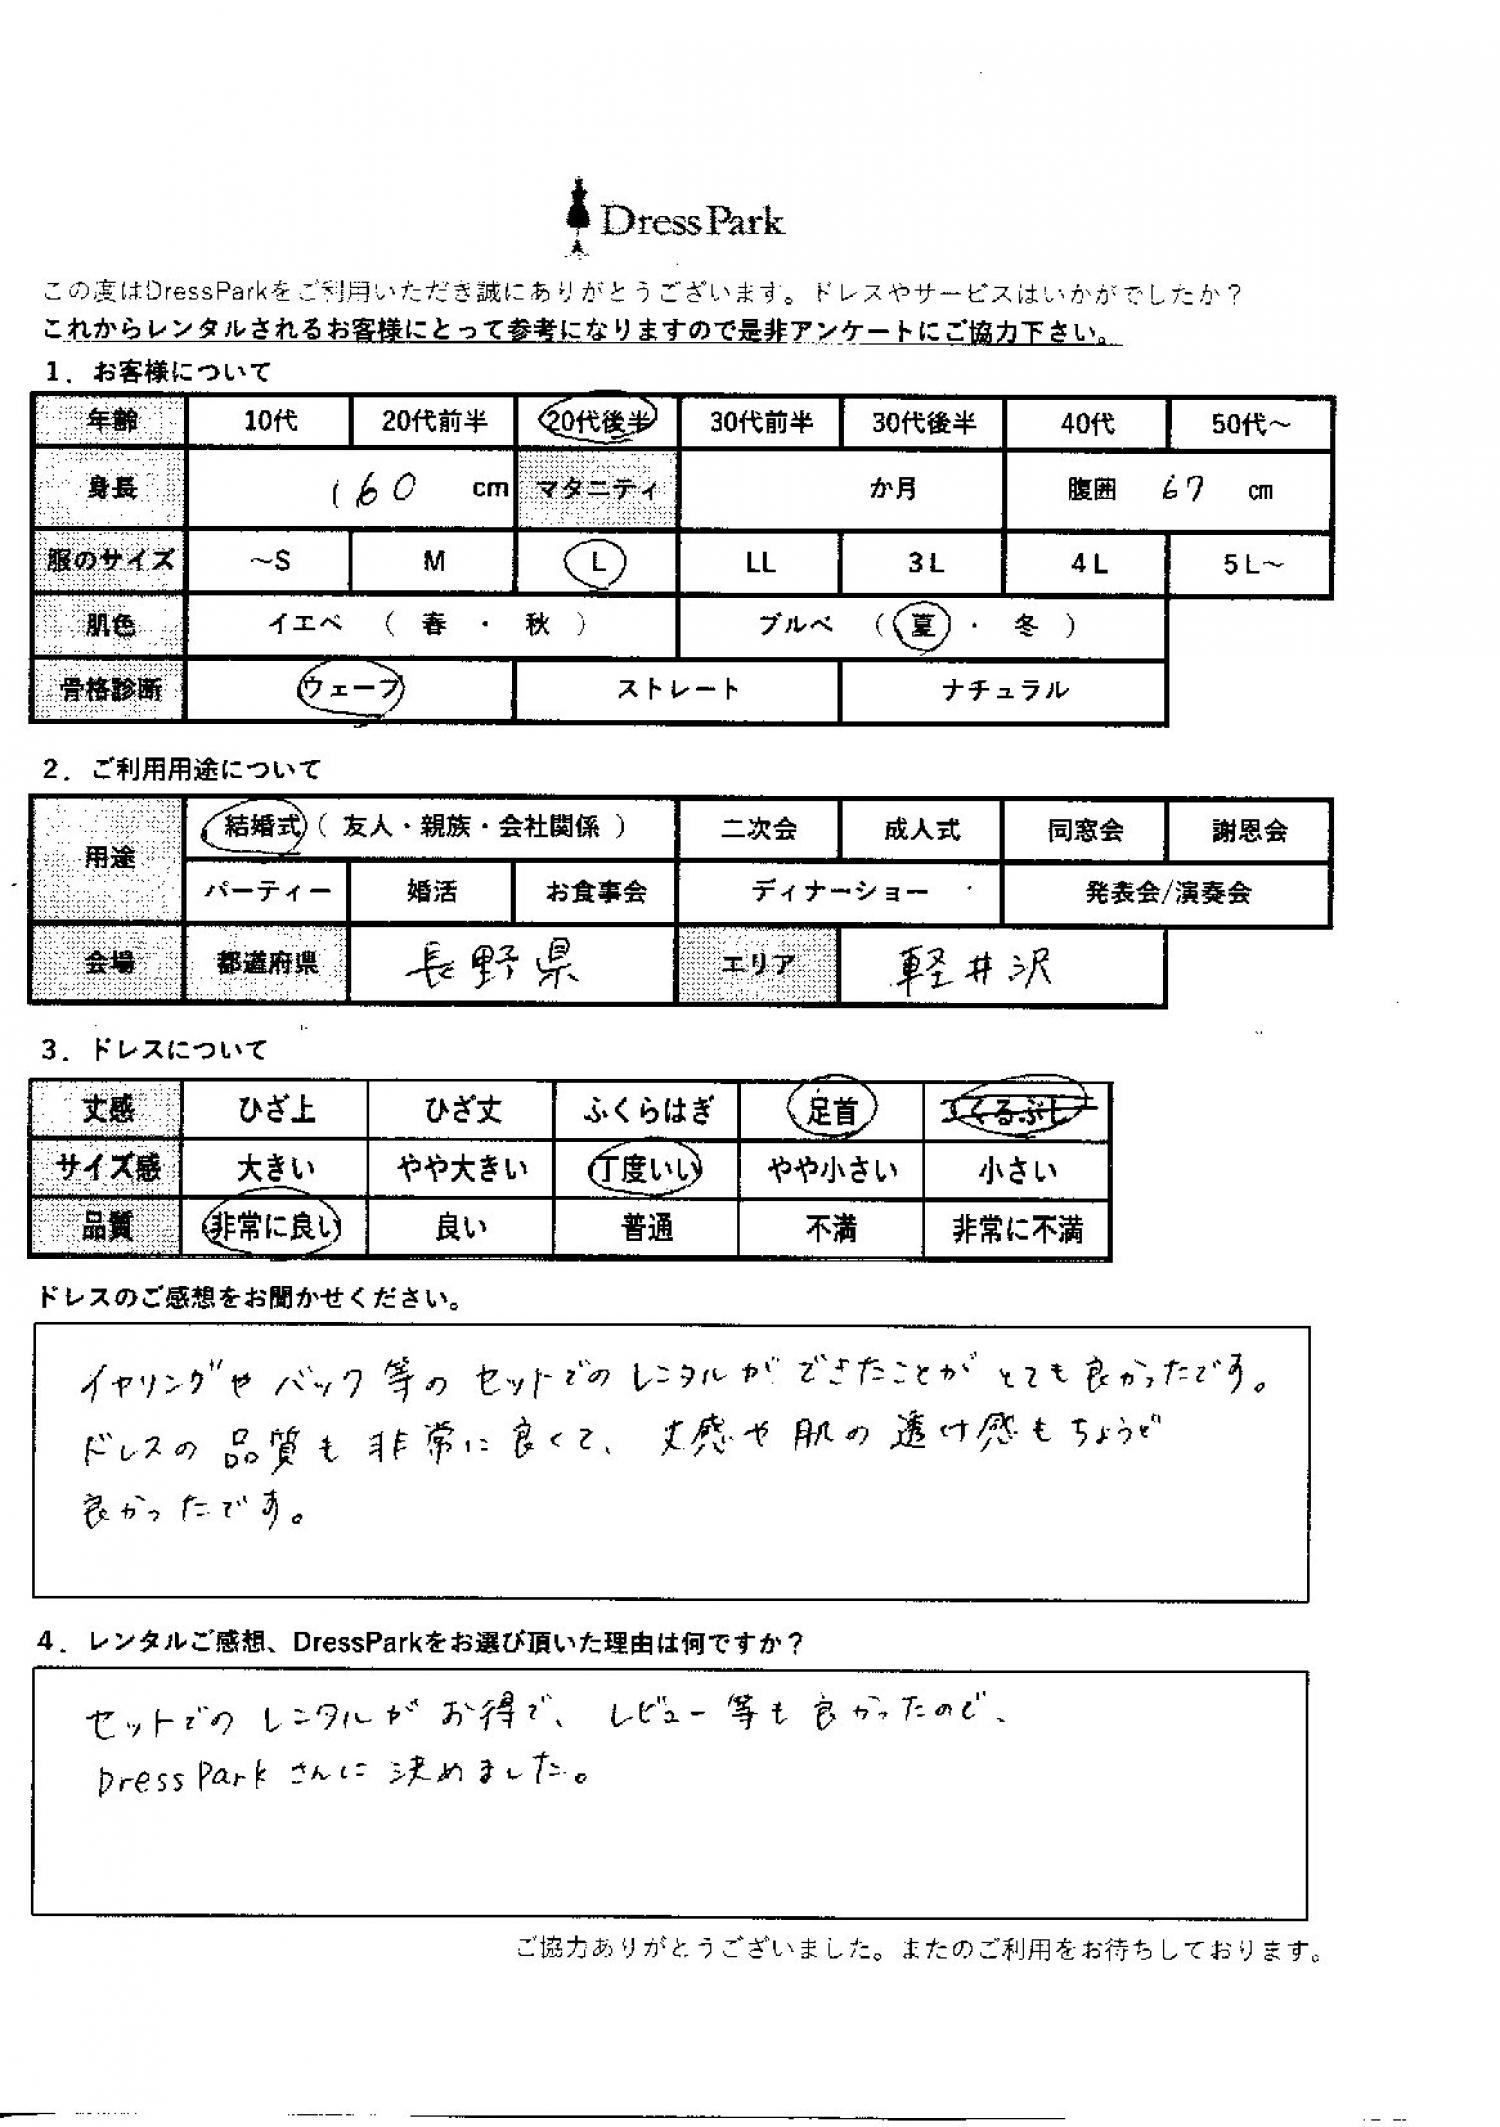 DressPark
この度はDressParkをご利用いただき誠にありがとうございます。ドレスやサービスはいかがでしたか？
これからレンタルされるお客様にとって参考になりますので是非アンケートにご協力下さい。
1．お客様について
年齢 10代 20代前半 20代後半 30代前半 30代後半 40代 50代～
身長 160 cm マタニティ か月 腹囲 67 cm
服のサイズ ～S M L LL 3L 4L 5L～
肌色 イエベ （ 春 ・ 秋 ） ブルベ （ 夏 ・ 冬 ）
骨格診断 ウェーブ ストレート ナチュラル
2．ご利用用途について
用途 結婚式（ 友人・親族・会社関係 ） 二次会 成人式 同窓会 謝恩会
パーティー 婚活 お食事会 ディナーショー 発表会/演奏会
会場 都道府県 長野県 エリア 軽井沢
3．ドレスについて
丈感 ひざ上 ひざ丈 ふくらはぎ 足首 くるぶし
サイズ感 大きい やや大きい 丁度いい やや小さい 小さい
品質 非常に良い 良い 普通 不満 非常に不満
ドレスのご感想をお聞かせください。
イヤリングやバック等のセットでのレンタルができたことがとても良かったです。
ドレスの品質も非常に良くて、丈感や肌の透け感もちょうど
良かったです。
4．レンタルご感想、DressParkをお選び頂いた理由は何ですか？
セットでのレンタルがお得で、レビュー等も良かったので、
DressParkさんに決めました。
ご協力ありがとうございました。またのご利用をお待ちしております。